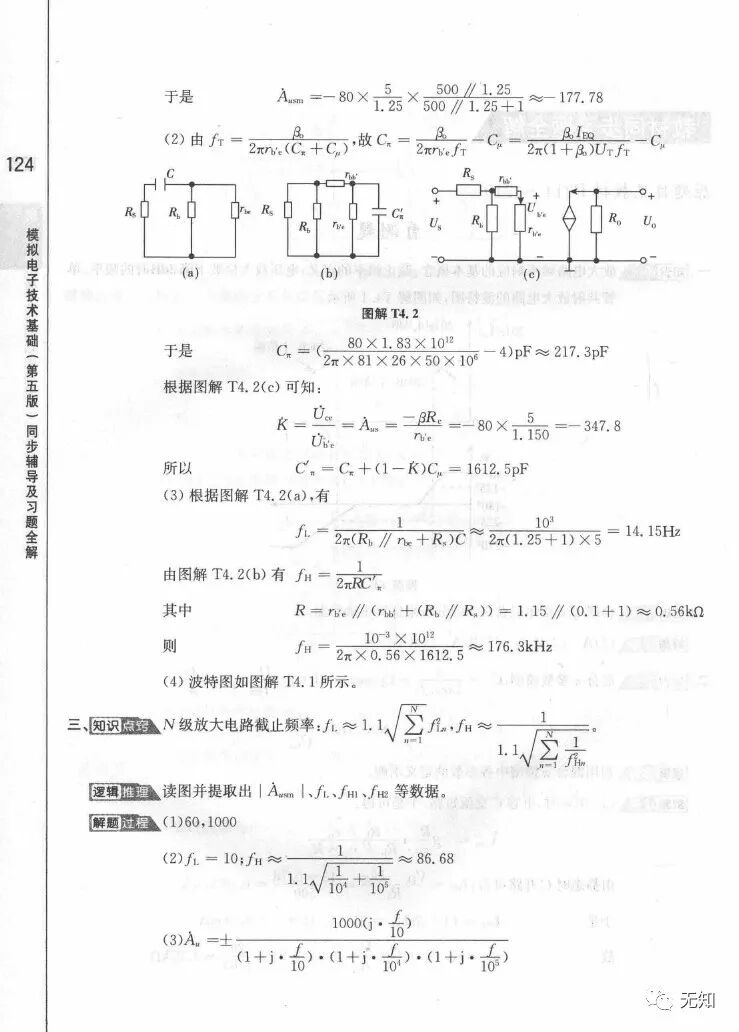 于是 Ȧusm = −80 × 5/1.25 × (500 // 1.25)/(500 // 1.25 + 1) ≈ −177.78
(2) 由 fT = β₀/(2πr_b'e(Cπ + Cμ)),故 Cπ = β₀/(2πr_b'e fT) − Cμ = β₀I_EQ/(2π(1+β₀)U_T fT) − Cμ
124
C Rs Rb rbe
Rs Rb rbb' rb'e C'π
Rs rbb' + Us − Rb Ub'e rb'e Ro + Uo −
(a) (b) (c)
图解 T4.2
于是 Cπ = (80×1.83×10¹²/(2π×81×26×50×10⁶) − 4)pF ≈ 217.3pF
根据图解 T4.2(c) 可知:
K̇ = U̇ce/U̇b'e = Ȧus = −βRc/rb'e = −80 × 5/1.150 = −347.8
所以 C'π = Cπ + (1−K̇)Cμ = 1612.5pF
(3) 根据图解 T4.2(a),有
fL = 1/(2π(Rb // rbe + Rs)C) ≈ 10³/(2π(1.25+1)×5) = 14.15Hz
由图解 T4.2(b) 有 fH = 1/(2πRC'π)
其中 R = rb'e // (rbb' + (Rb // Rs)) = 1.15 // (0.1+1) ≈ 0.56kΩ
则 fH = 10⁻³×10¹²/(2π×0.56×1612.5) ≈ 176.3kHz
(4) 波特图如图解 T4.1 所示。
三、知识点窍 N 级放大电路截止频率:fL ≈ 1.1√(∑_{n=1}^{N} f²Ln),fH ≈ 1/(1.1√(∑_{n=1}^{N} 1/f²Hn))。
逻辑推理 读图并提取出 | Ȧusm |、fL、fH1、fH2 等数据。
解题过程 (1)60,1000
(2)fL = 10;fH ≈ 1/(1.1√(1/10⁴ + 1/10⁵)) ≈ 86.68
(3)Ȧu = ± 1000(j·f/10)/((1+j·f/10)·(1+j·f/10⁴)·(1+j·f/10⁵))
模拟电子技术基础(第五版)同步辅导及习题全解
无知